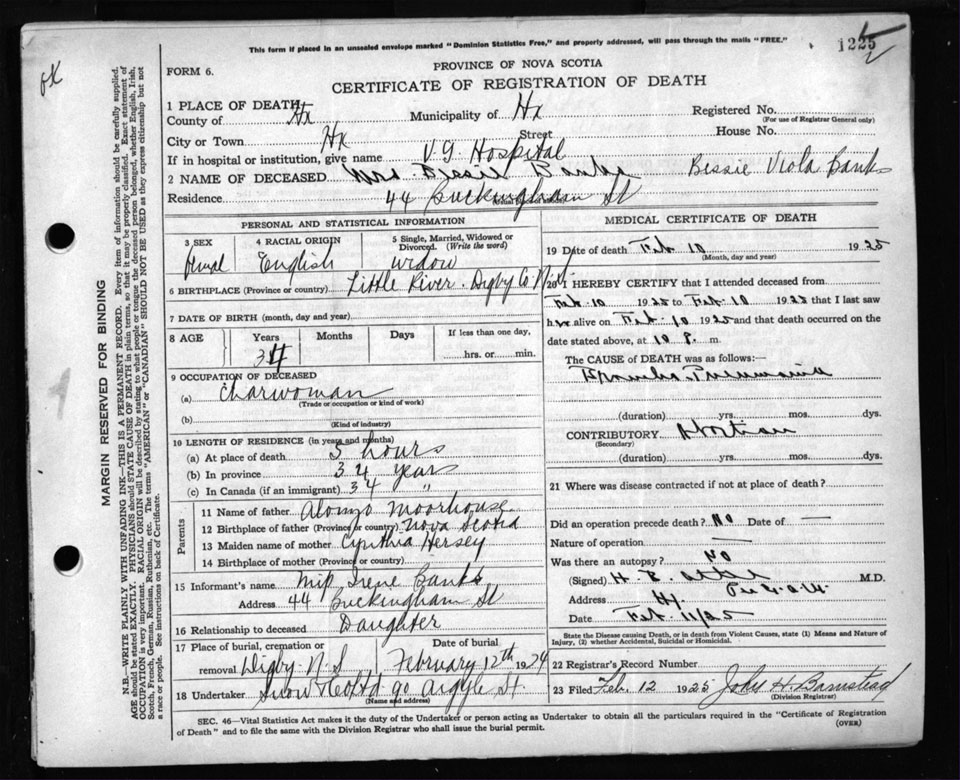 This form if placed in an unsealed envelope marked "Dominion Statistics Free," and properly addressed, will pass through the mails "FREE."
1225
OK
PROVINCE OF NOVA SCOTIA
FORM 6.
CERTIFICATE OF REGISTRATION OF DEATH
1 PLACE OF DEATH
County of Hx Municipality of Hx Registered No.
(For use of Registrar General only)
City or Town Hx Street House No.
If in hospital or institution, give name V.G. Hospital
2 NAME OF DECEASED Mrs. Bessie Banks Bessie Viola Banks
Residence 44 Buckingham St
PERSONAL AND STATISTICAL INFORMATION
3 SEX 4 RACIAL ORIGIN 5 Single, Married, Widowed or Divorced. (Write the word)
femal English widow
6 BIRTHPLACE (Province or country) Little River. Digby Co N.S.
7 DATE OF BIRTH (month, day and year)
8 AGE Years Months Days If less than one day,
34 hrs. or min.
9 OCCUPATION OF DECEASED
(a) Charwoman
(Trade or occupation or kind of work)
(b)
(Kind of industry)
10 LENGTH OF RESIDENCE (in years and months)
(a) At place of death 5 hours
(b) In province 34 years
(c) In Canada (if an immigrant) 34 "
Parents
11 Name of father Alonzo Moorhouse
12 Birthplace of father (Province or country) Nova Scotia
13 Maiden name of mother Cynthia Hersey
14 Birthplace of mother (Province or country)
15 Informant's name Miss Irene Banks
Address 44 Buckingham St
16 Relationship to deceased Daughter
17 Place of burial, cremation or removal Digby N.S Date of burial February 12th 1924
18 Undertaker Snow & Co Ltd 90 Argyle St.
(Name and address)
MEDICAL CERTIFICATE OF DEATH
19 Date of death Feb 10 1925
(Month, day and year)
20 I HEREBY CERTIFY that I attended deceased from
Feb. 10 1925 to Feb. 10 1925 that I last saw
her alive on Feb. 10 1925 and that death occurred on
date stated above, at 10 P. m.
The CAUSE OF DEATH was as follows:
Broncho. Pneumonia
(duration) yrs. mos. dys.
CONTRIBUTORY Abortion
(Secondary)
(duration) yrs. mos. dys.
21 Where was disease contracted if not at place of death?
Did an operation precede death? No Date of —
Nature of operation —
Was there an autopsy? No
(Signed) H. E. M.D.
Address Hx.
Date Feb. 11/25
State the Disease causing Death, or in death from Violent Causes, state (1) Means and Nature of Injury, (2) whether Accidental, Suicidal or Homicidal.
22 Registrar's Record Number
23 Filed Feb. 12 1925 John H Barnstead
(Division Registrar)
SEC. 46—Vital Statistics Act makes it the duty of the Undertaker or person acting as Undertaker to obtain all the particulars required in the "Certificate of Registration
of Death" and to file the same with the Division Registrar who shall issue the burial permit. (OVER)
MARGIN RESERVED FOR BINDING
N.B.—WRITE PLAINLY WITH UNFADING INK—THIS IS A PERMANENT RECORD. Every item of information should be carefully supplied.
AGE should be stated EXACTLY. PHYSICIANS should STATE CAUSE OF DEATH in plain terms, so that it may be properly classified. Exact statement of
OCCUPATION is very important. RACIAL ORIGIN will be described by stating to what people or tongue the deceased person belonged, whether English, Irish,
Scotch, French, German, Russian, Ruthenian, etc. The terms "AMERICAN" or "CANADIAN" SHOULD NOT BE USED as they express citizenship but not
a race or people. See instructions on back of Certificate.